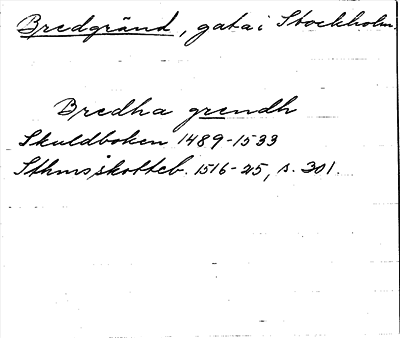 Bredgränd, gata i Stockholm.
Bredha grendh
Skuldboken 1489-1533
Sthms skotteb. 1516-25, s. 301.